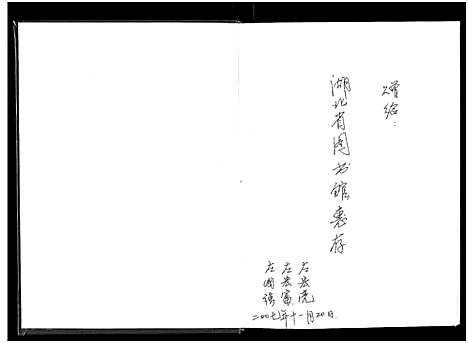 赠给：
湖北省图书馆惠存
左宏亮
左宏富
左国强
二〇〇七年十一月20日